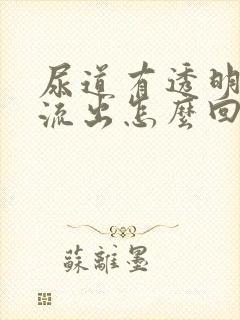 尿道有透明
流出怎麼回
蘇離墨